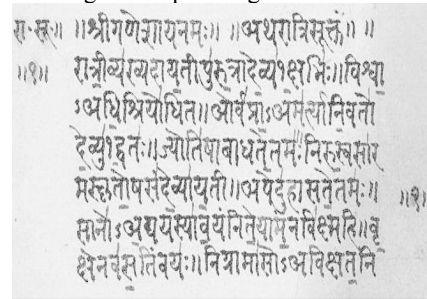 रा॰सू॰॥ ॥श्रीगणेशायनमः॥ ॥अथरात्रिसूक्तं॥ ॥
॥१॥ रात्रीव्यख्यदायतीपुरुत्रादेव्य१क्षभिः॥विश्वा
ऽअधिश्रियोधित॥ओर्वप्राऽअमर्त्यानिवतो
देव्यु१द्वतः॥ज्योतिषाबाधतेतमः॥निरुस्वसार
मस्कृतोषसंदेव्यायती॥अपेदुहासतेतमः॥ ॥१॥
सानोऽअद्ययस्यावयंनितेयामन्नविक्ष्महि॥वृ
क्षेनवसतिंवयः॥निग्रामासोऽअविक्षतनि